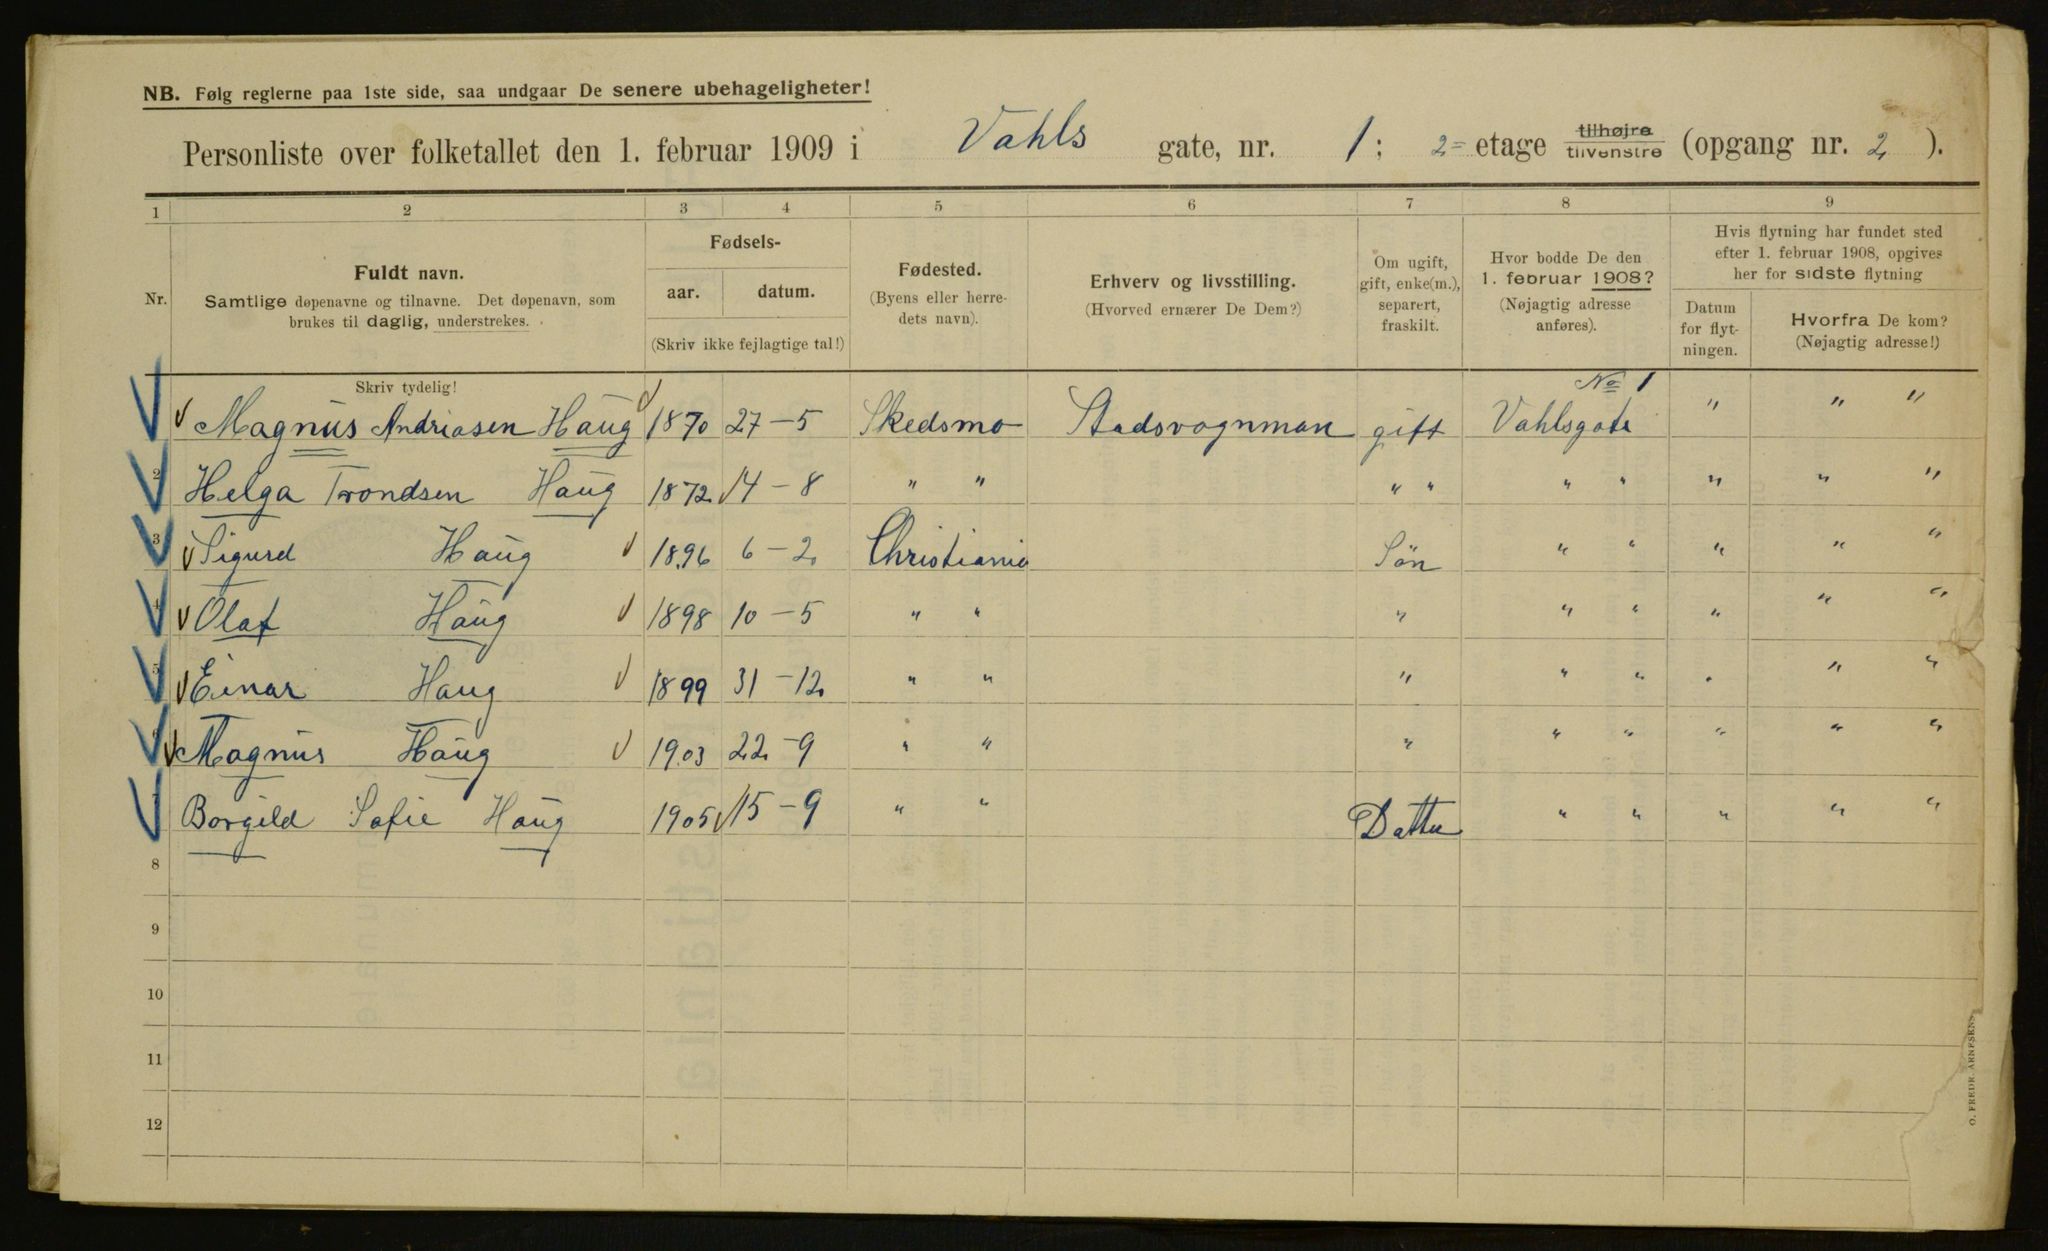 NB. Følg reglerne paa 1ste side, saa undgaar De senere ubehageligheter!
Personliste over folketallet den 1. februar 1909 i Vahls gate, nr. 1; 2= etage tilhøjre tilvenstre (opgang nr. 2).
1 2 3 4 5 6 7 8 9
Nr.
Fuldt navn.
Samtlige døpenavne og tilnavne. Det døpenavn, som
brukes til daglig, understrekes.
Fødsels-
aar. datum.
(Skriv ikke fejlagtige tal!)
Fødested.
(Byens eller herre-
dets navn).
Erhverv og livsstilling.
(Hvorved ernærer De Dem?)
Om ugift,
gift, enke(m.),
separert,
fraskilt.
Hvor bodde De den
1. februar 1908?
(Nøjagtig adresse
anføres).
Hvis flytning har fundet sted
efter 1. februar 1908, opgives
her for sidste flytning
Datum
for flyt-
ningen.
Hvorfra De kom?
(Nøjagtig adresse!)
Skriv tydelig!
No 1
Magnus Andriasen Haug 1870 27-5 Skedsmo Stadsvognman gift Vahlsgate " " "
2 Helga Trondsen Haug 1872 14-8 " " " " " " " " "
3 Sigurd Haug 1896 6-2 Christiania Søn " " " " "
4 Olaf Haug 1898 10-5 " " " " " " " "
5 Einar Haug 1899 31-12 " " " " " " " "
6 Magnus Haug 1903 22-9 " " " " " " " "
7 Borgild Sofie Haug 1905 15-9 " " Datter " " " " "
8
9
10
11
12
O. FREDR. ARNESENS